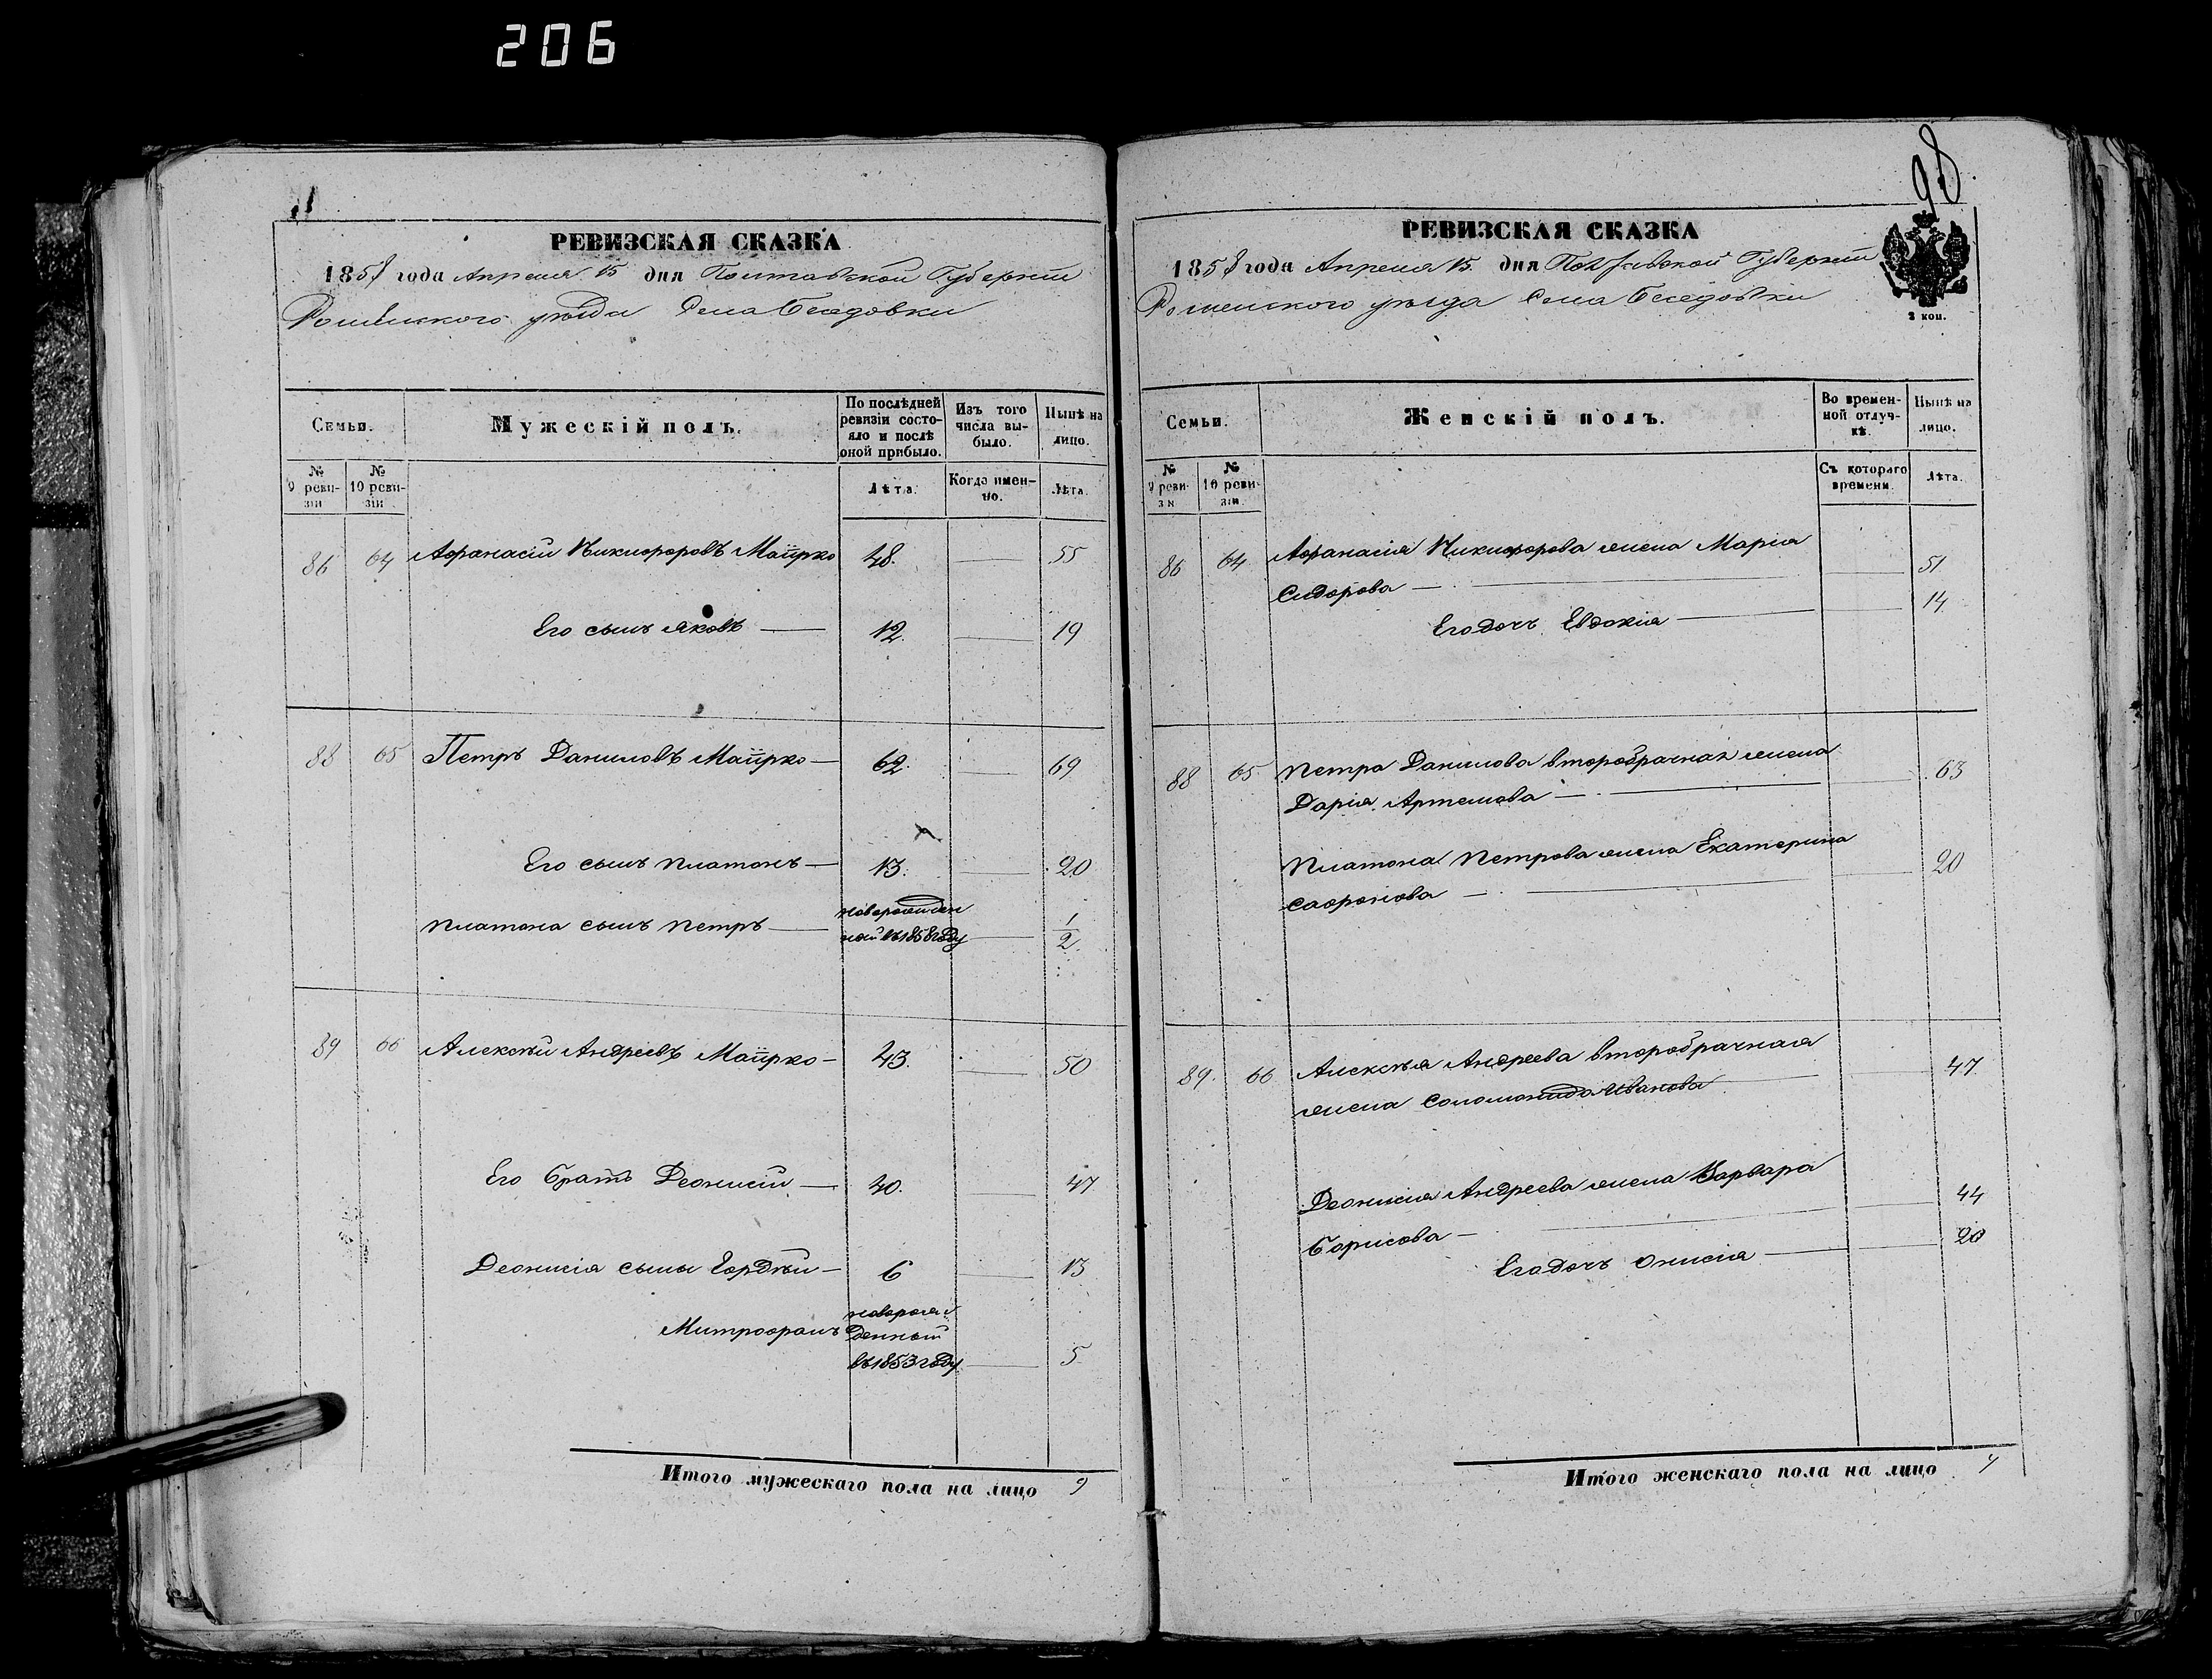 206
РЕВИЗСКАЯ СКАЗКА
1858 года Апреля 15 дня Полтавской Губерніи
Роменского уѣзда Села Беседовки
Семьи.
Мужескій полъ.
По послѣдней ревизіи состояло и послѣ оной прибыло.
Изъ того числа выбыло.
Нынѣ на лицо.
№ 9 ревизіи
№ 10 ревизіи
Лѣта.
Когда именно.
Лѣта.
86 64 Афанасій Никифоровъ Маіірко 48. 55
Его сынъ Яковъ 12. 19
88 65 Петръ Даниловъ Маіірко 62. 69
Его сынъ Платонъ 13. 20
Платона сынъ Петръ новорожден
ной въ 1858 году 1/2
89 66 Алексѣй Андреевъ Маіірко 43. 50
Его братъ Деонисій 40. 47
Деонисія сыны Гордѣй 6 13
Митрофанъ новорож
денный
въ 1853 году 5
Итого мужескаго пола на лицо 9
98
РЕВИЗСКАЯ СКАЗКА
1858 года Апреля 15. дня Полтавской Губерніи
Роменского уѣзда Села Беседовки
2 коп.
Семьи.
Женскій полъ.
Во временной отлучкѣ.
Нынѣ на лицо.
№ 9 ревизіи
№ 10 ревизіи
Съ котораго времени.
Лѣта.
86 64 Афанасія Никифорова жена Марія
Сидорова 51
Его дочь Евдокія 14
88 65 Петра Данилова второбрачная жена 63
Дарія Артемова
Платона Петрова жена Екатерина 20
Сафонова
89. 66 Алексѣя Андреева второбрачная 47
жена Соломонида Иванова
Деонисія Андреева жена Варвара 44
Борисова
Его дочь Онисія 20
Итого женскаго пола на лицо 7